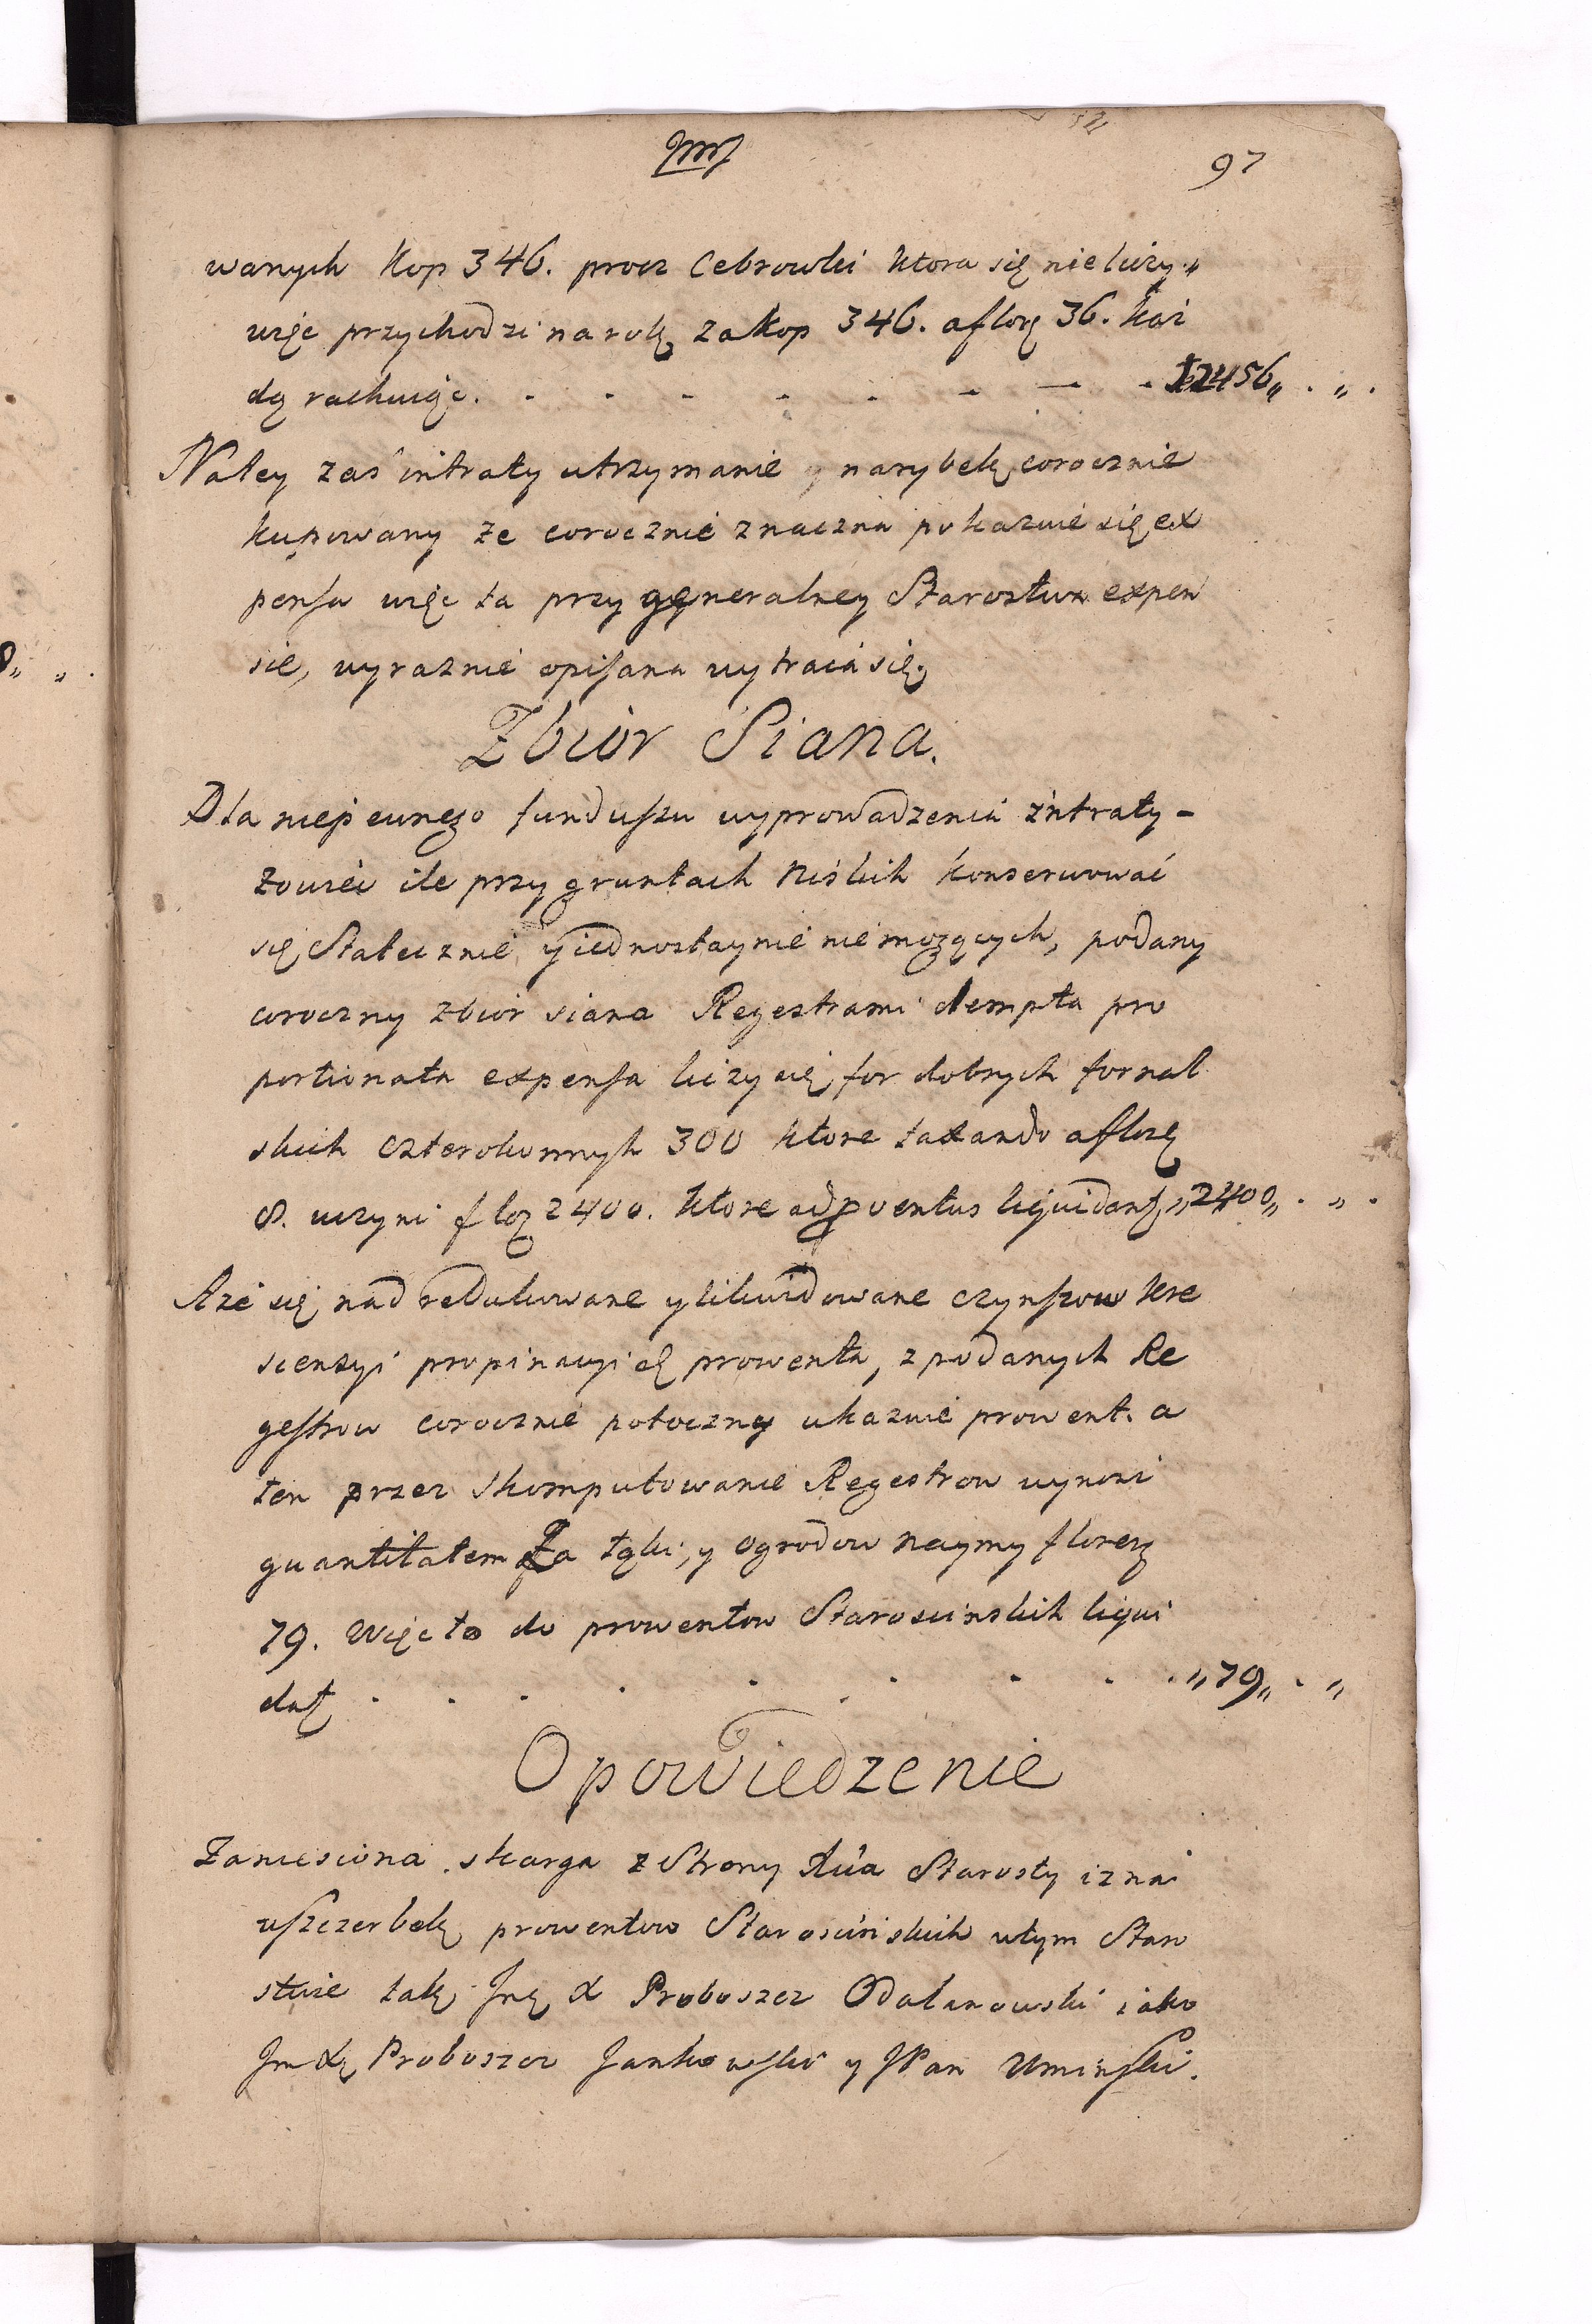 97
wanych Kop 346. procz Cebrowki ktora się nie liczy„
więc przychodzi na rok, za Kop 346. a florę 36. każ
dą rachuiąc. . . . . . . — - 12456„ . „ .
Na tey zaś intraty utrzymanie y narybek, corocznie
kupowany ze corocznie znaczna pokazuie się ex
pensa więc ta przy generalney Starostwa expen
sie, wyraznie opisana wytrąca się.
Zbior Siana.
Dla niepewnego funduszu wyprowadzenia intraty -
ile przy gruntach Niskich konserwować
się Statecznie y iednostaynie nie mogących, podany
coroczny zbior siana Regestrami dempta pro
portionata expensa liczy się, for dobrych fornal
skich czterokonnych 300 ktore taxando a florę
8. uczyni flor 2400. ktore ad pventus liquidant „2400„ . „ .
A że się nad redukowane y likwidowane czynszow kre
scensyi propinacyi etc prowenta, z podanych Re
gestrow corocznie potoczny ukazuie prowent. a
ten przez skomputowanie Regestrow wynosi
quantitatem Za łąki, y ogrodow naymy florę
79. więc to do prowentow Staroscinskich liqui
dat . . . . . . . . . „79„ . „
Opowiedzenie
Zaniesiona skarga z Strony Starosty iz na
uszczerbek prowentow Staroscinskich w tym Staro
stwie tak Jmę X Proboszcz Odolanowski iako
Jm Xę Proboszcz Jankowski y JPan Uminski.